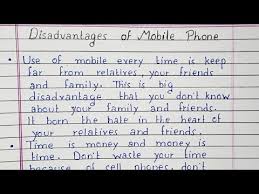 Disadvantages of Mobile Phone
• Use of mobile every time is keep
far from relatives, your friends
and family. This is big
disadvantage that you don't know
about your family and friends.
It born the hate in the heart of
your relatives and friends.
• Time is money and money
is time. Don't waste your
time because of cell phones, don't